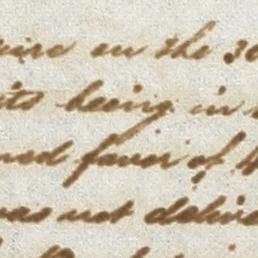 on the 30
its being in
favor of
was not delive